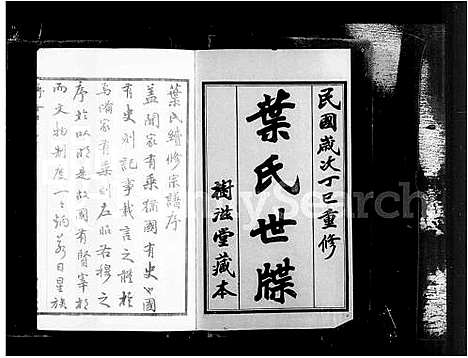 民國歲次丁巳重修
葉氏世牒
樹滋堂藏本
葉氏續修宗譜序
蓋聞家有乘猶國有史國
有史則記事載言之體於
焉備家有乘則左昭右穆之
序於以明是故國有賢宰相
而文物制度一一炳若日星族
FamilySearch